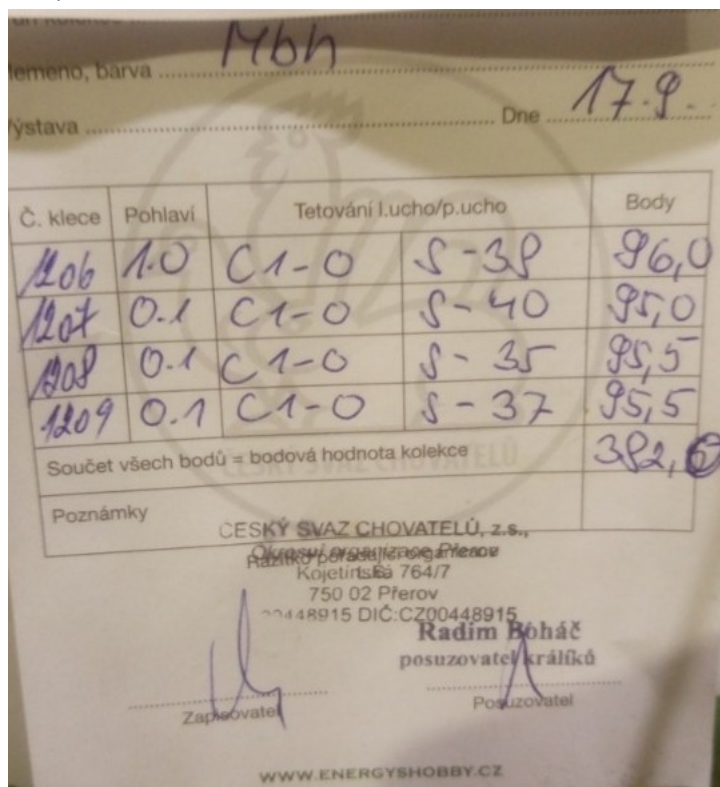 lemeno, barva Mbh
ýstava Dne 17.9.
Č. klece Pohlaví Tetování l.ucho/p.ucho Body
1206 1.0 C1-0 S-38 96,0
1207 0.1 C1-0 S-40 95,0
1208 0.1 C1-0 S-35 95,5
1209 0.1 C1-0 S-37 95,5
Součet všech bodů = bodová hodnota kolekce 382,0
ČESKÝ SVAZ CHOVATELŮ
Poznámky
ČESKÝ SVAZ CHOVATELŮ, z.s.,
Okresní organizace Přerov
Razítko pořádající organizace
Kojetínská 764/7
750 02 Přerov
00448915 DIČ:CZ00448915
Radim Boháč
posuzovatel králíků
Zapisovatel Posuzovatel
WWW.ENERGYSHOBBY.CZ